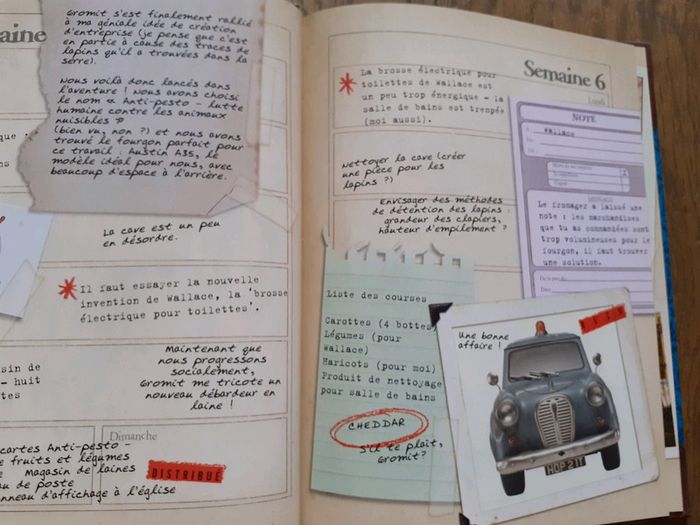 aine
Gromit s'est finalement rallié
à ma géniale idée de création
d'entreprise (je pense que c'est
en partie à cause des traces de
lapins qu'il a trouvées dans la
serre).
Nous voilà donc lancés dans
l'aventure ! Nous avons choisi
le nom « Anti-pesto - lutte
humaine contre les animaux
nuisibles »
(bien vu, non ?) et nous avons
trouvé le fourgon parfait pour
ce travail : Austin A35, le
modèle idéal pour nous, avec
beaucoup d'espace à l'arrière.
La cave est un peu
en désordre.
Il faut essayer la nouvelle
invention de Wallace, la 'brosse
électrique pour toilettes'.
Maintenant que
nous progressons
socialement,
Gromit me tricote un
nouveau débardeur en
laine !
sin de
- huit
tes
Dimanche
cartes Anti-pesto -
e fruits et légumes
Magasin de laines
au de poste
nneau d'affichage à l'église
DISTRIBUÉ
Semaine 6
Lundi
La brosse électrique pour
toilettes de Wallace est
un peu trop énergique - la
salle de bains est trempée
(moi aussi).
Nettoyer la cave (créer
une pièce pour les
lapins ?)
Envisager des méthodes
de détention des lapins :
grandeur des clapiers,
hauteur d'empilement ?
NOTE
Wallace
MESSAGE
Le fromager a laissé une
note : les marchandises
que tu as commandées sont
trop volumineuses pour le
fourgon, il faut trouver
une solution.
Liste des courses
Carottes (4 bottes)
Légumes (pour
Wallace)
Haricots (pour moi)
Produit de nettoyage
pour salle de bains
CHEDDAR
S'il te plaît,
Gromit?
Une bonne
affaire !
HOP 21T